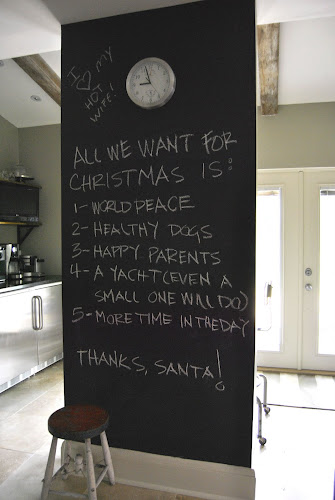 I ♡ MY
HOT
WIFE!
ALL WE WANT FOR
CHRISTMAS IS:
1- WORLD PEACE
2- HEALTHY DOGS
3- HAPPY PARENTS
4- A YACHT (EVEN A
SMALL ONE WILL DO)
5- MORE TIME IN THE DAY
THANKS, SANTA!